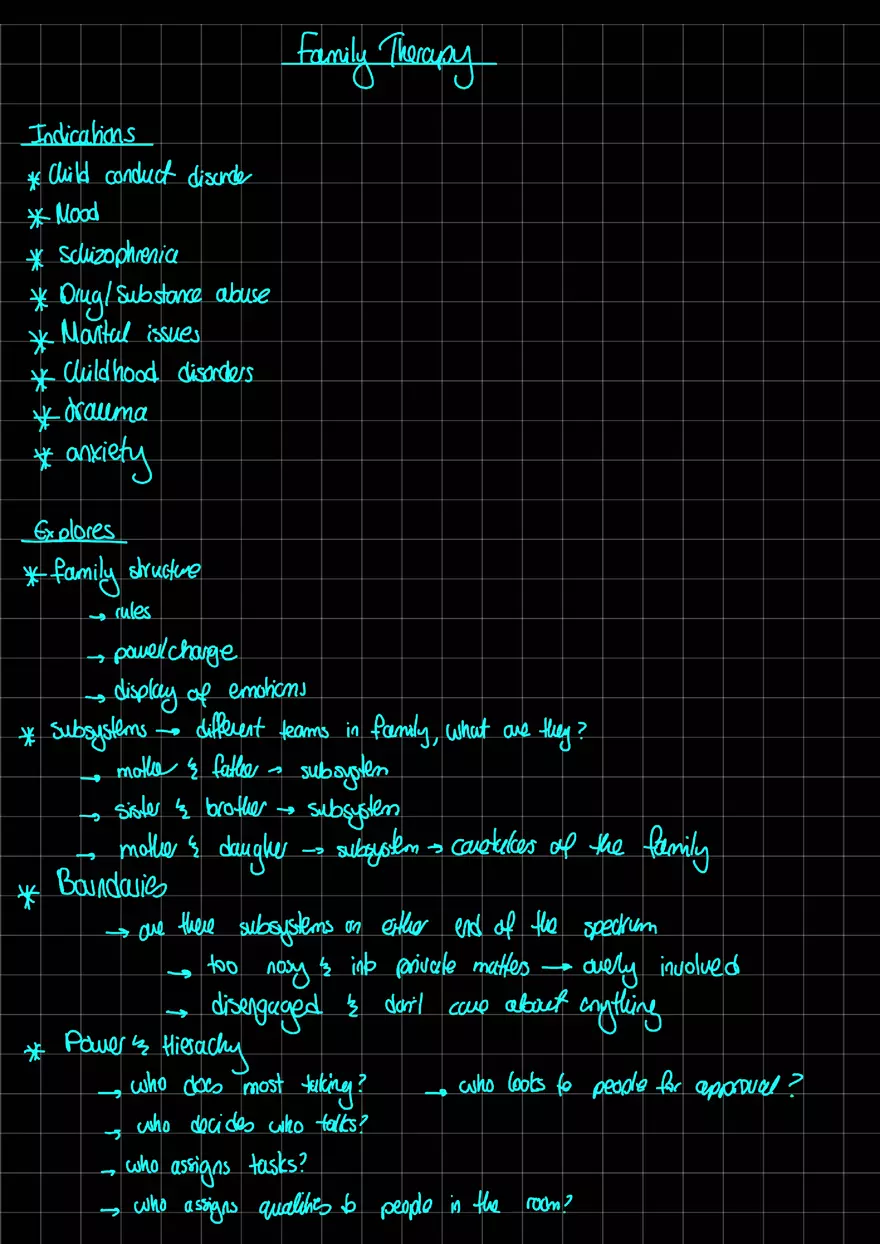 Family Therapy
Indications
* Child conduct disorder
* Mood
* Schizophrenia
* Drug/Substance abuse
* Marital issues
* Childhood disorders
* trauma
* anxiety
Explores
* family structure
→ rules
→ power/charge
→ display of emotions
* subsystems → different teams in family, what are they?
→ mother & father → subsystem
→ sister & brother → subsystem
→ mother & daugher → subsystem → caretakers of the family
* Boundaries
→ are there subsystems on either end of the spectrum
→ too nosy & into private matters → overly involved
→ disengaged & don't care about anything
* Power & Hierachy
→ who does most talking? → who looks to people for approval?
→ who decides who talks?
→ who assigns tasks?
→ who assigns qualities to people in the room?